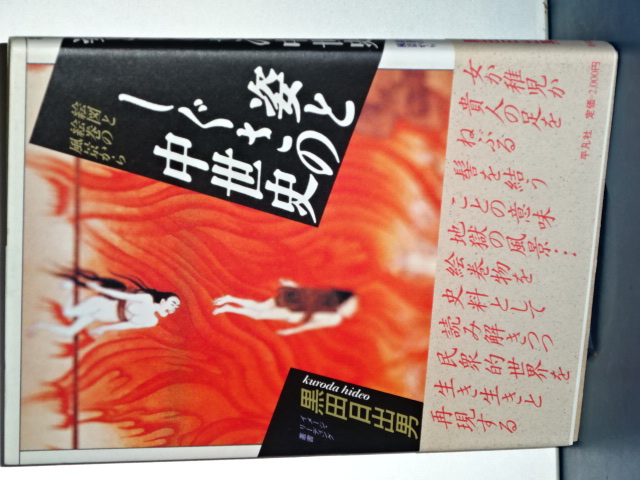 姿としぐさの
中世史
絵図と
絵巻の
風景から
kuroda hideo
黒田日出男
イメージ
リーディング
叢書
女か稚児か
貴人の足を
ねぶる
髻を結う
ことの意味
地獄の風景…
絵巻物を
史料として
読み解きつつ
民衆的世界を
生き生きと
再現する
平凡社 定価-2,000円